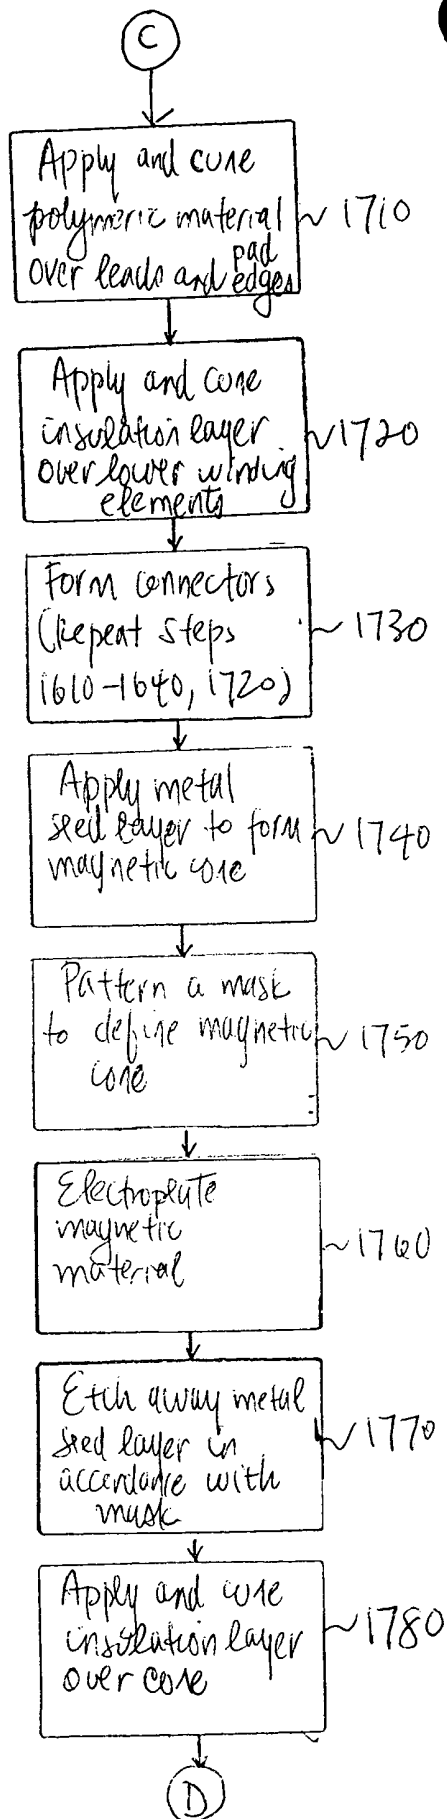 C
Apply and cure
polymeric material
over leads and pad
edges
1710
Apply and cure
insulation layer
over lower winding
elements
1720
Form connectors
(Repeat Steps
1610-1640, 1720)
1730
Apply metal
seed layer to form
magnetic core
1740
Pattern a mask
to define magnetic
core
1750
Electroplate
magnetic
material
1760
Etch away metal
seed layer in
accordance with
mask
1770
Apply and cure
insulation layer
over core
1780
D